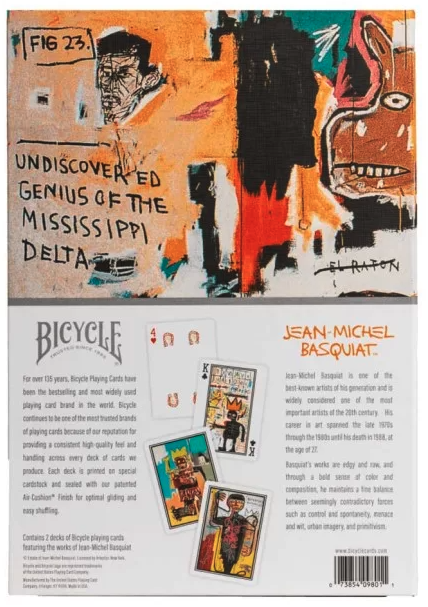 FIG 23.
UNDISCOVERED
GENIUS OF THE
MISSISSIPPI
DELTA
EL RATON
BICYCLE
®
TRUSTED SINCE 1885
For over 135 years, Bicycle Playing Cards have
been the bestselling and most widely used
playing card brand in the world. Bicycle
continues to be one of the most trusted brands
of playing cards because of our reputation for
providing a consistent high-quality feel and
handling across every deck of cards we
produce. Each deck is printed on special
cardstock and sealed with our patented
Air-Cushion® Finish for optimal gliding and
easy shuffling.
Contains 2 decks of Bicycle playing cards
featuring the works of Jean-Michel Basquiat
© Estate of Jean-Michel Basquiat. Licensed by Artestar, New York.
Bicycle and Bicycle logo are registered trademarks
of the United States Playing Card Company.
Manufactured by The United States Playing Card
Company, Erlanger, KY 41018. Made in USA.
4
K
K
JEAN-MICHEL
BASQUIAT
Jean-Michel Basquiat is one of the
best-known artists of his generation and is
widely considered one of the most
important artists of the 20th century. His
career in art spanned the late 1970s
through the 1980s until his death in 1988, at
the age of 27.
Basquiat's works are edgy and raw, and
through a bold sense of color and
composition, he maintains a fine balance
between seemingly contradictory forces
such as control and spontaneity, menace
and wit, urban imagery, and primitivism.
www.bicyclecards.com
0 73854 09801 1